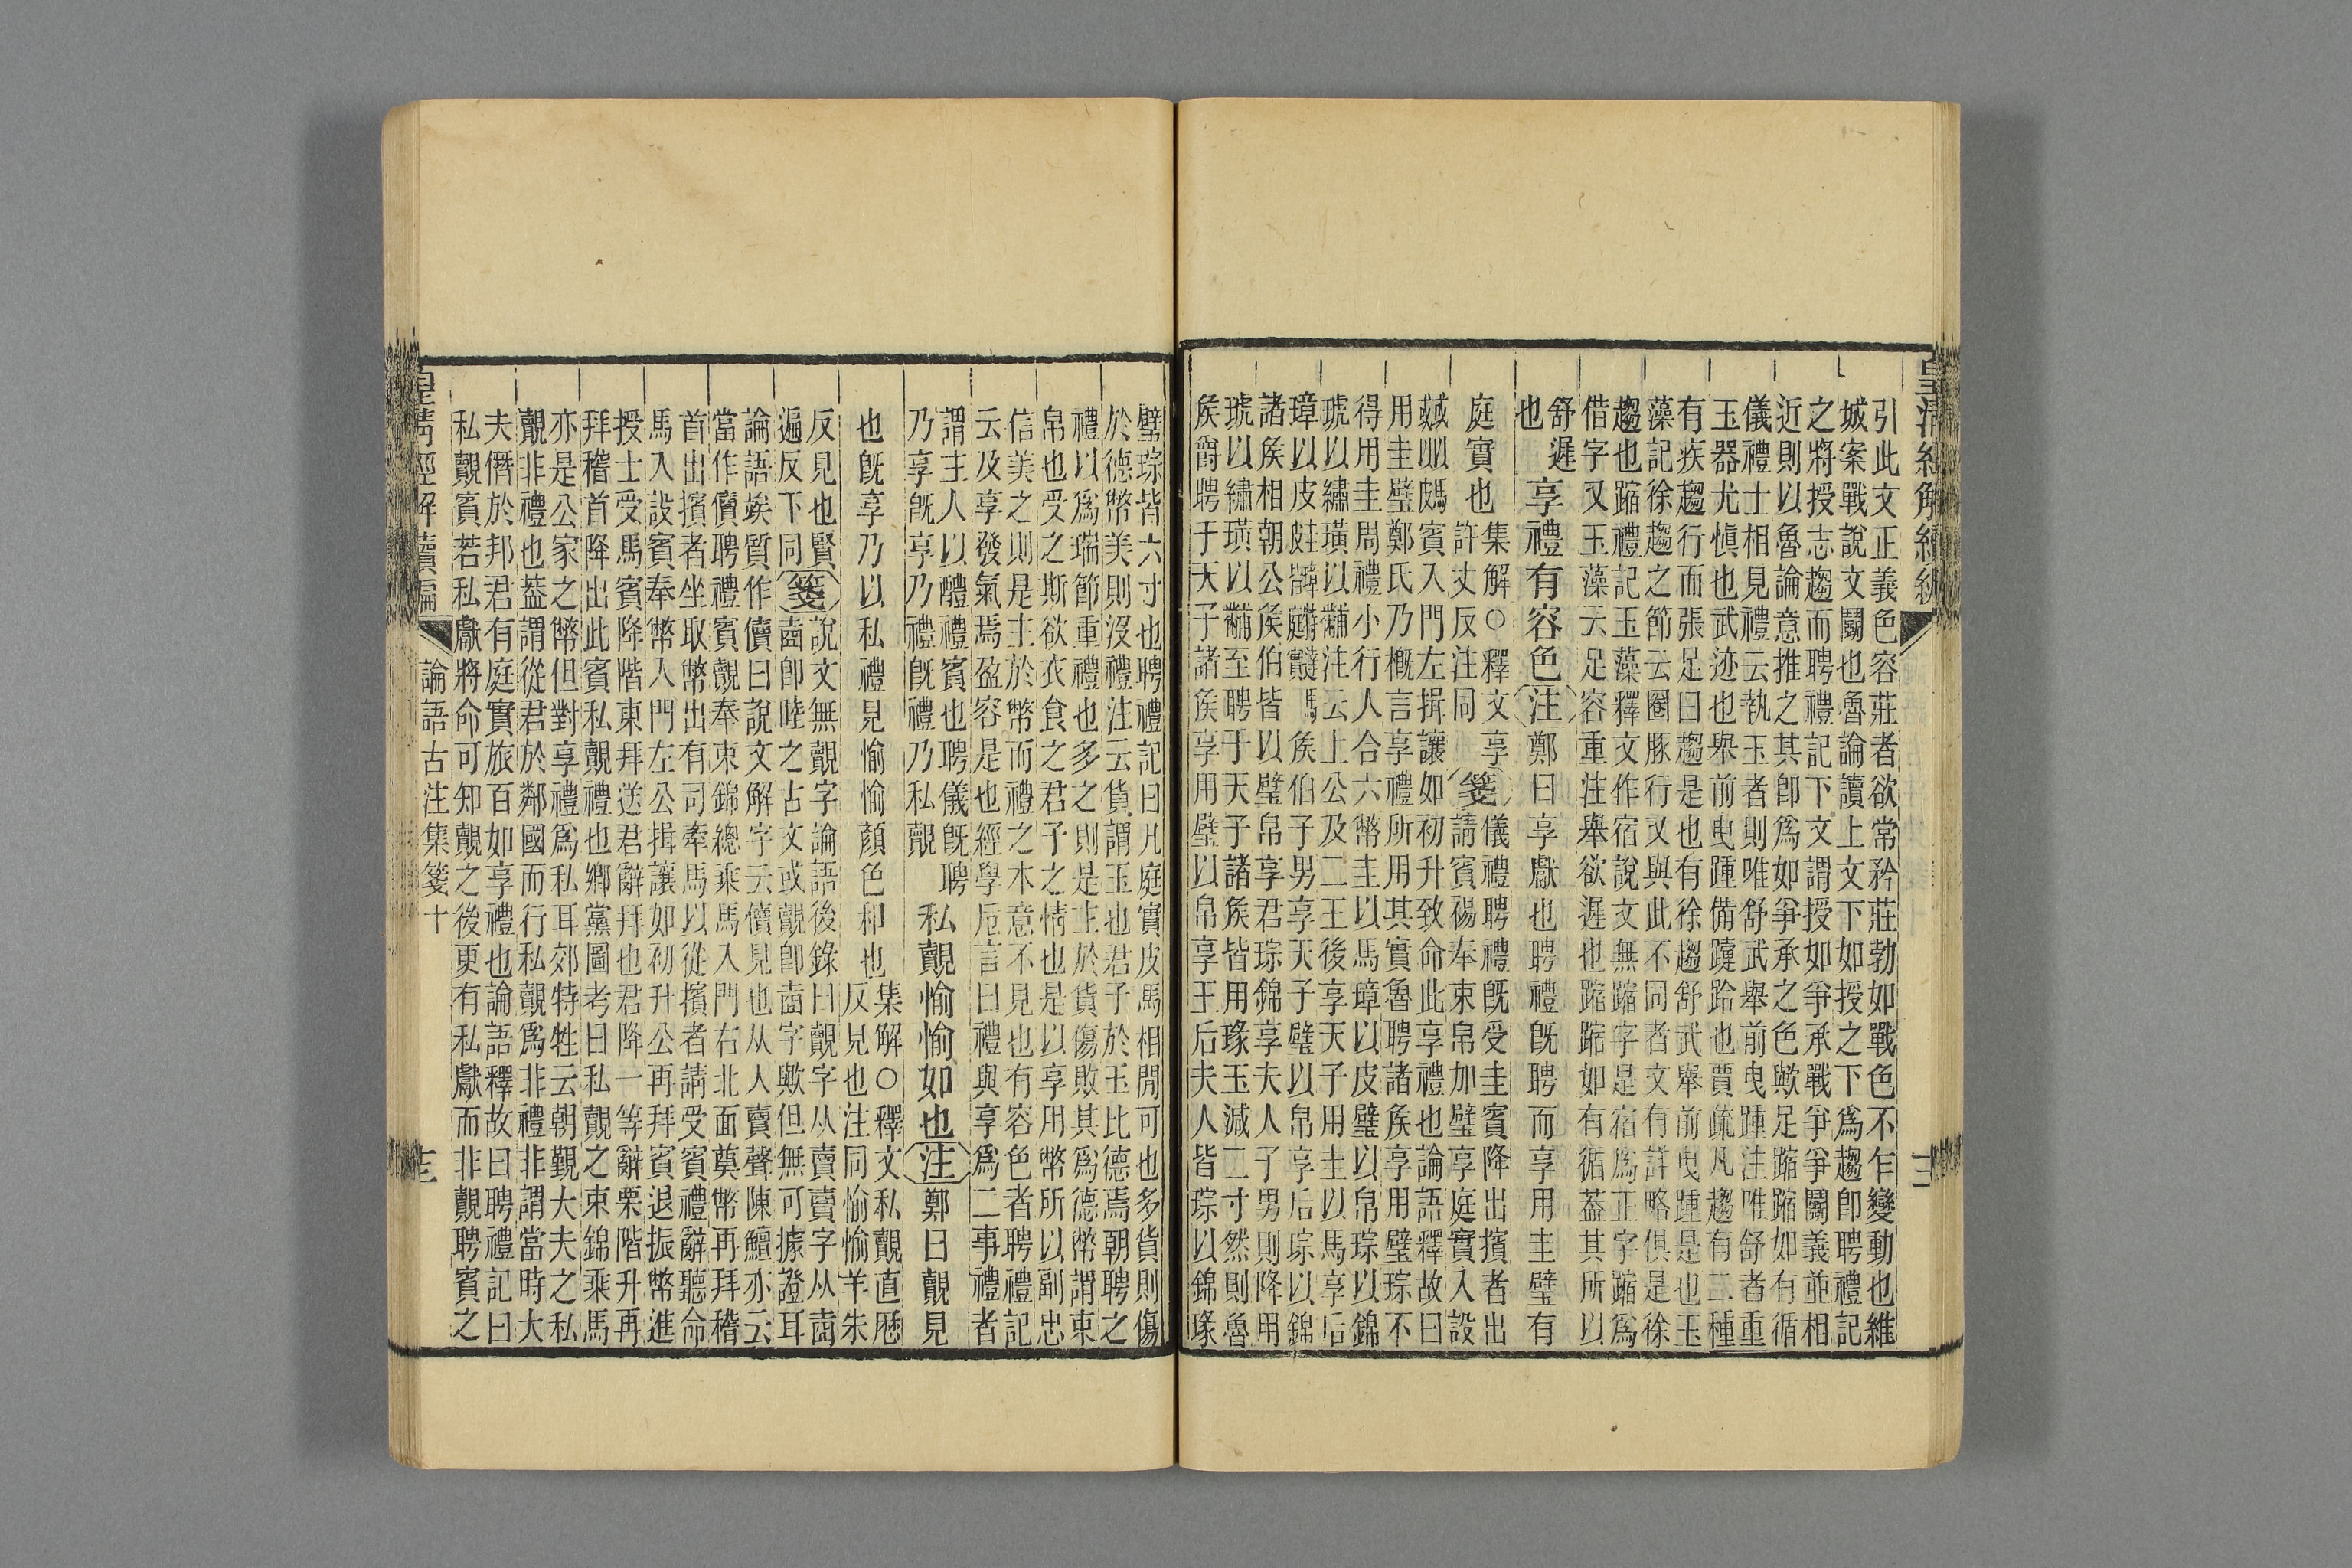 皇清經解續編
引此文正義色容莊者欲常矜莊勃如戰色不乍變動也維
城案戰說文鬭也魯論讀上文下如授之下爲趨卽聘禮記
之將授志趨而聘禮記下文謂授如爭承戰爭爭鬭義並相
近則以魯論意推之其卽爲如爭承之色歟足蹜蹜如有循
儀禮士相見禮云執玉者則唯舒武舉前曳踵注唯舒者重
玉器尤愼也武迹也舉前曳踵備躓跲也賈疏凡趨有三種
有疾趨行而張足曰趨是也有徐趨舒武舉前曳踵是也玉
藻記徐趨之節云圈豚行又與此不同者文有詳略俱是徐
趨也蹜禮記玉藻釋文作宿說文無蹜字是宿爲正字蹜爲
借字又玉藻云足容重注舉欲遲也蹜蹜如有循葢其所以
舒遲
也
享禮有容色注鄭曰享獻也聘禮旣聘而享用圭璧有
庭實也
集解○釋文享
許丈反注同
箋
儀禮聘禮旣受圭賓降出擯者出
請賓裼奉束帛加璧享庭實入設
攝賓入門左揖讓如初升致命此享禮也論語釋故曰
用圭璧鄭氏乃槪言享禮所用其實魯聘諸矦享用璧琮不
得用圭周禮小行人合六幣圭以馬璋以皮璧以帛琮以錦
琥以繡璜以黼注云上公及二王後享天子用圭以馬享后
璋以皮矦伯子男享天子璧以帛享后琮以錦
諸矦相朝公矦伯皆以璧帛享君琮錦享夫人子男則降用
琥以繡璜以黼至聘于天子諸矦皆用瑑玉減二寸然則魯
矦爵聘于天子諸矦享用璧以帛享王后夫人皆琮以錦瑑
璧琮皆六寸也聘禮記曰凡庭實皮馬相閒可也多貨則傷
於德幣美則沒禮注云貨謂玉也君子於玉比德焉朝聘之
禮以爲瑞節重禮也多之則是主於貨傷敗其爲德幣謂束
帛也受之斯欲衣食之君子之情也是以享用幣所以副忠
信美之則是主於幣而禮之本意不見也有容色者聘禮記
云及享發氣焉盈容是也經學卮言曰禮與享爲二事禮者
謂主人以醴禮賓也聘儀旣聘
乃享旣享乃禮旣禮乃私覿
私覿愉愉如也注鄭曰覿見
也旣享乃以私禮見愉愉顏色和也
集解○釋文私覿直歷
反見也注同愉愉羊朱
反見也賢
遍反下同
箋
說文無覿字論語後錄曰覿字从賣賣字从𡍬
𡍬卽睦之古文或覿卽𡍬字歟但無可據證耳
論語竢質作儥曰說文解字云儥見也从人賣聲陳鱣亦云
當作儥聘禮賓覿奉束錦總乘馬入門右北面奠幣再拜稽
首出擯者坐取幣出有司牽馬以從擯者請受賓禮辭聽命
馬入設賓奉幣入門左公揖讓如初升公再拜賓退振幣進
授士受馬賓降階東拜送君辭拜也君降一等辭栗階升再
拜稽首降出此賓私覿禮也鄕黨圖考曰私覿之束錦乘馬
亦是公家之幣但對享禮爲私耳郊特牲云朝覲大夫之私
覿非禮也葢謂從君於鄰國而行私覿爲非禮非謂當時大
夫僭於邦君有庭實旅百如享禮也論語釋故曰聘禮記曰
私覿賓若私獻將命可知覿之後更有私獻而非覿聘賓之
皇淸經解續編
論語古注集箋十